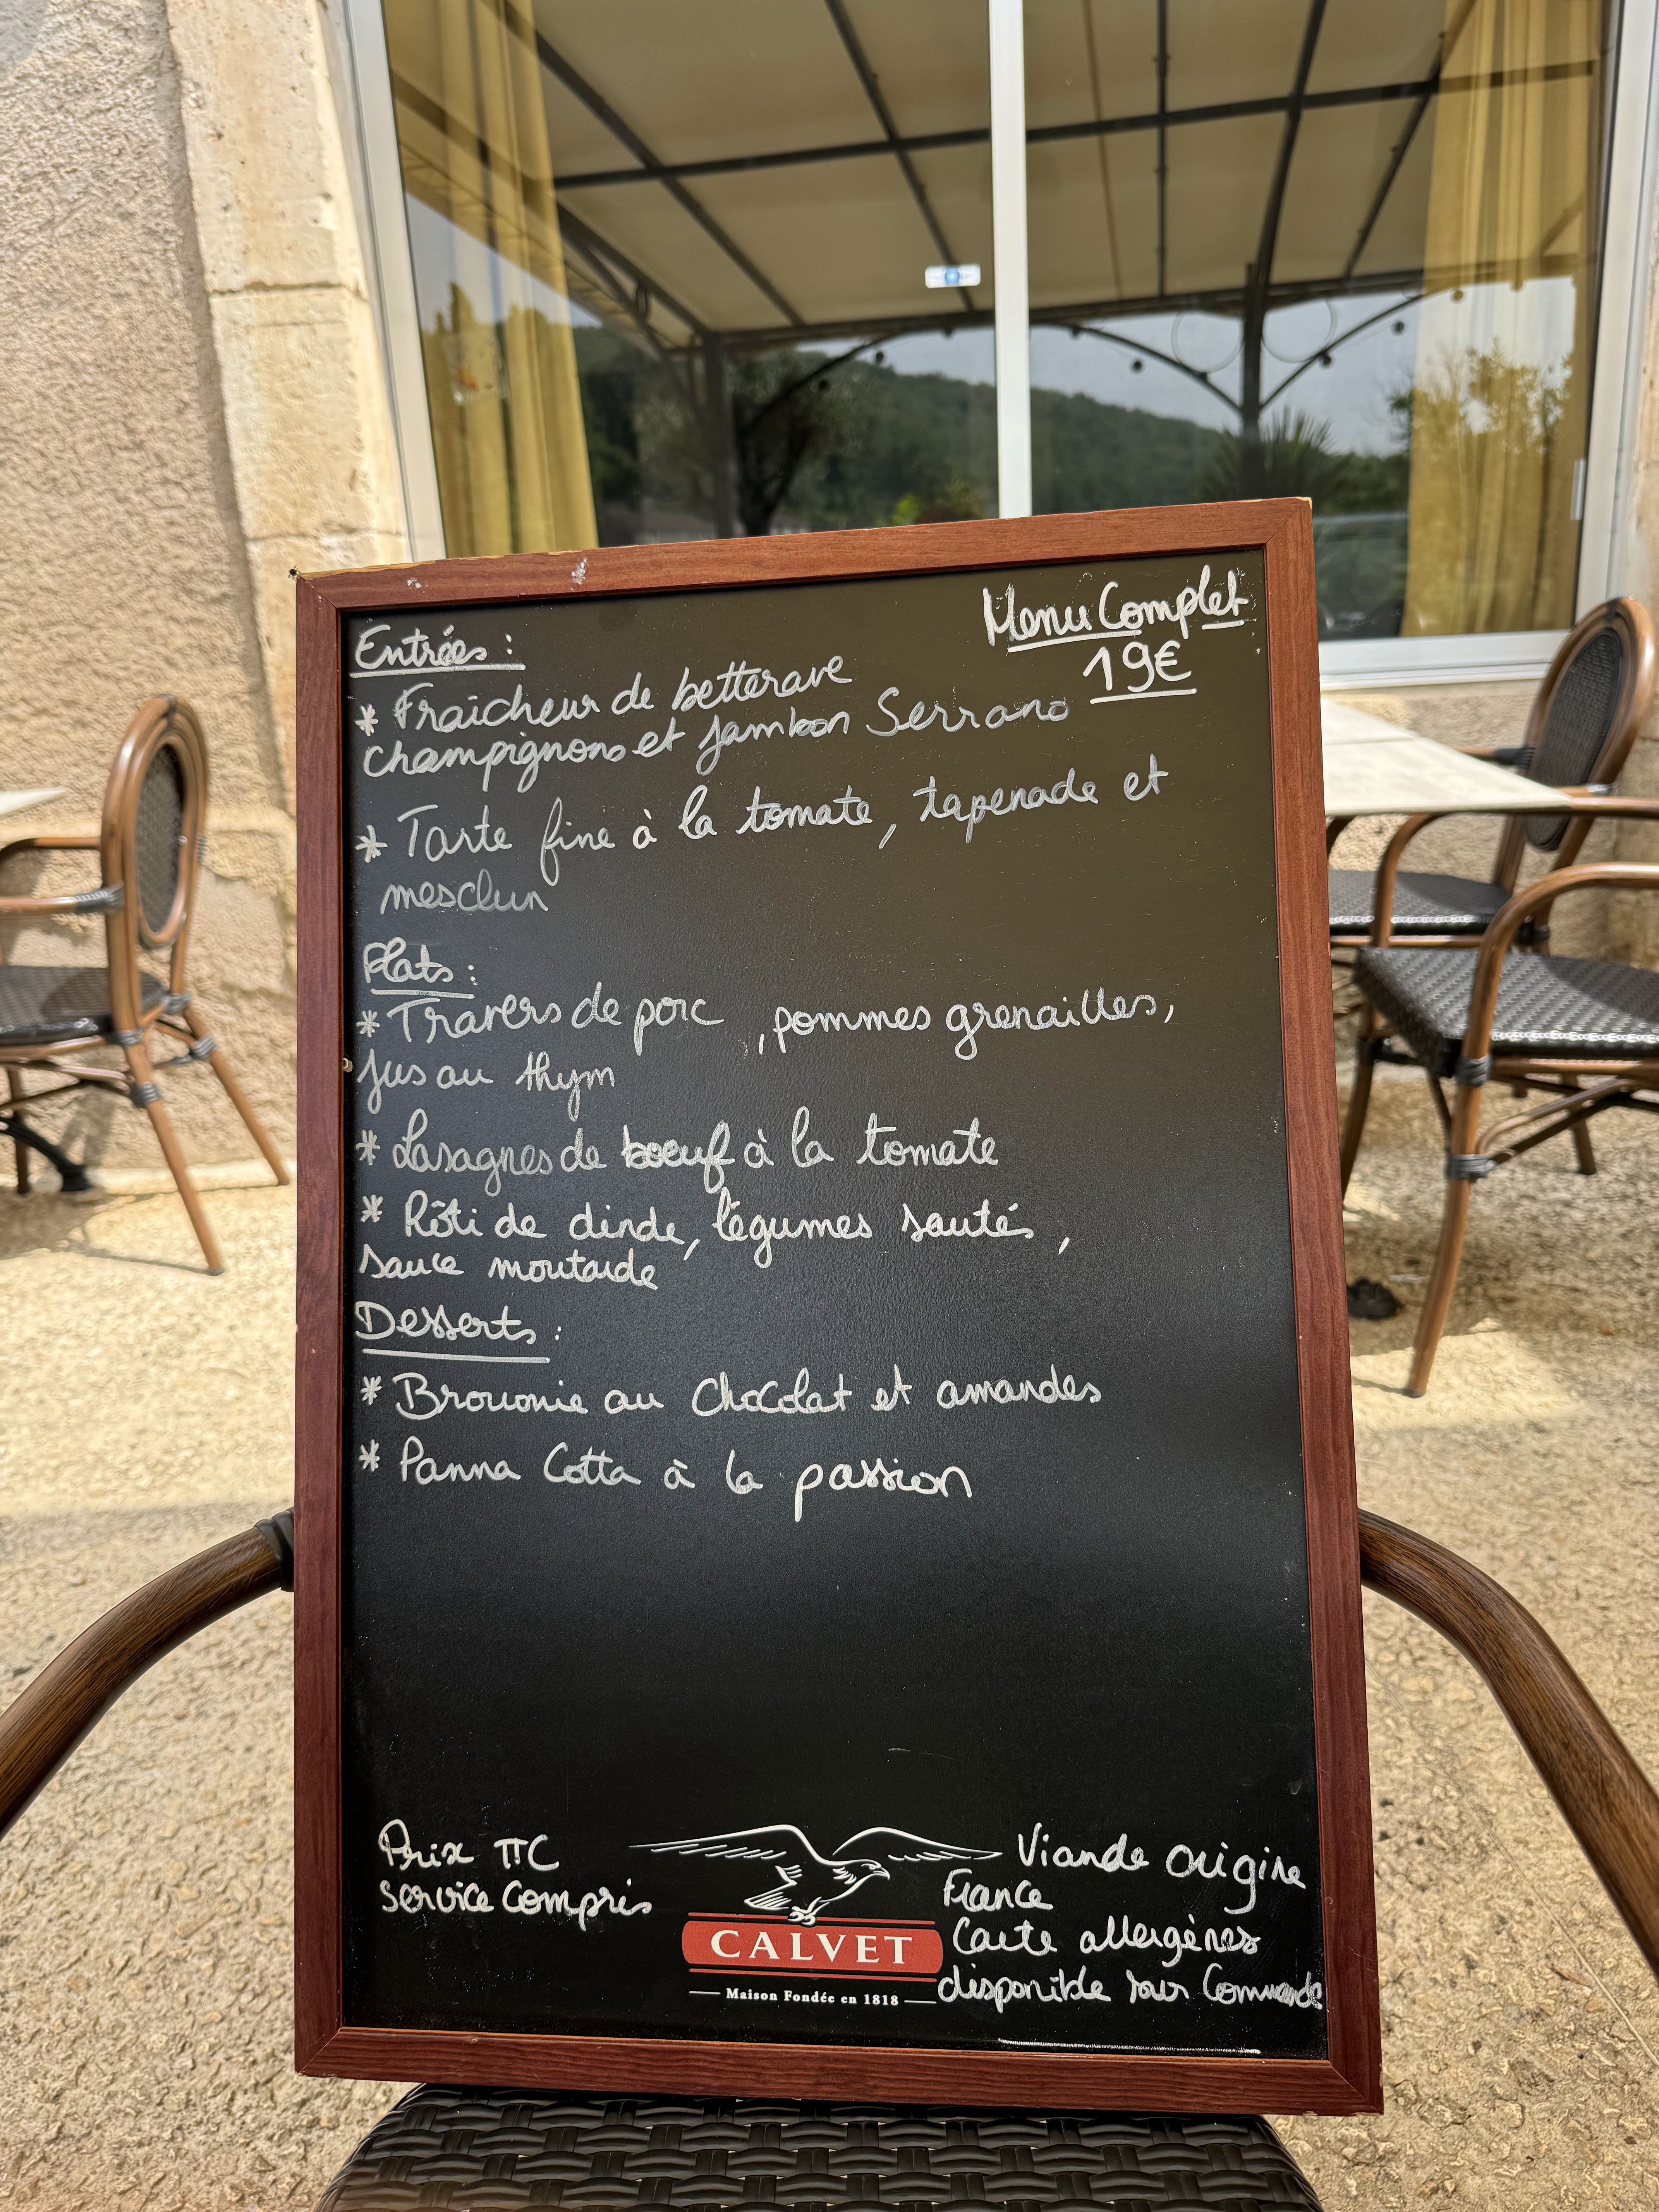 Menu Complet
19€
Entrées :
* Fraîcheur de betterave
champignons et jambon Serrano
* Tarte fine à la tomate, tapenade et
mesclun
Plats :
* Travers de porc , pommes grenailles,
jus au thym
* Lasagnes de boeuf à la tomate
* Rôti de dinde, légumes sautés,
sauce moutarde
Desserts :
* Brownie au Chocolat et amandes
* Panna Cotta à la passion
Prix TTC
Service Compris
CALVET
Maison Fondée en 1818
Viande origine
France
Carte allergènes
disponible sur Commande